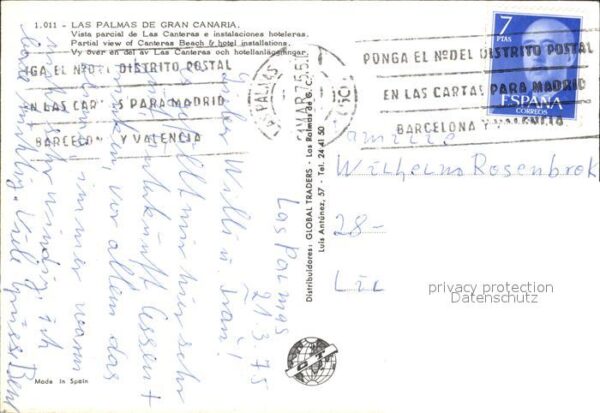 1.011 - LAS PALMAS DE GRAN CANARIA.
Vista parcial de Las Canteras e instalaciones hoteleras.
Partial view of Canteras Beach & hotel installations.
Vy över en del av Las Canteras och hotellanläggningar.
7
PTAS
ESPAÑA
CORREOS
PONGA EL Nº DEL DISTRITO POSTAL
EN LAS CARTAS PARA MADRID
BARCELONA Y VALENCIA
GA EL Nº DEL DISTRITO POSTAL
EN LAS CARTAS PARA MADRID
BARCELONA Y VALENCIA
LAS PALMAS
MAR 75
Las Palmas
21.3.75
Lieber Willi u. Frau!
Es gefällt mir hier sehr
Unterkunft Essen +
vor allem das
immer warm
windig, ich
Viele Grüsse
Familie
Wilhelm Rosenbrok
28-
Lil
Distribuidores: GLOBAL TRADERS - Las Palmas de G. C.
Luis Antúnez, 57 - Tel. 24 41 50
Made in Spain
privacy protection
Datenschutz